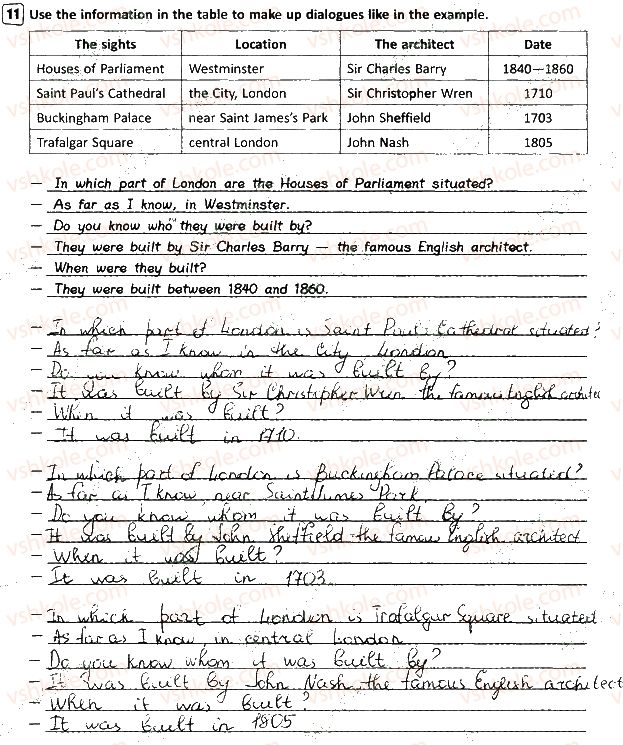 11 Use the information in the table to make up dialogues like in the example.
The sights Location The architect Date
Houses of Parliament Westminster Sir Charles Barry 1840—1860
Saint Paul's Cathedral the City, London Sir Christopher Wren 1710
Buckingham Palace near Saint James's Park John Sheffield 1703
Trafalgar Square central London John Nash 1805
— In which part of London are the Houses of Parliament situated?
— As far as I know, in Westminster.
— Do you know who they were built by?
— They were built by Sir Charles Barry — the famous English architect.
— When were they built?
— They were built between 1840 and 1860.
— In which part of London is Saint Paul's Cathedral situated?
— As far as I know in the City London
— Do you know whom it was built by?
— It was built by Sir Christopher Wren the famous English architec
— When it was built?
— It was built in 1710.
— In which part of London is Buckingham Palace situated?
— As far as I know, near Saint James Park.
— Do you know whom it was built by?
— It was built by John Sheffield the famous English architect
— When it was built?
— It was built in 1703.
— In which part of London is Trafalgar Square situated
— As far as I know, in central London
— Do you know whom it was built by?
— It was built by John Nash, the famous English architect
— When it was built?
— It was built in 1805
vshkole.com